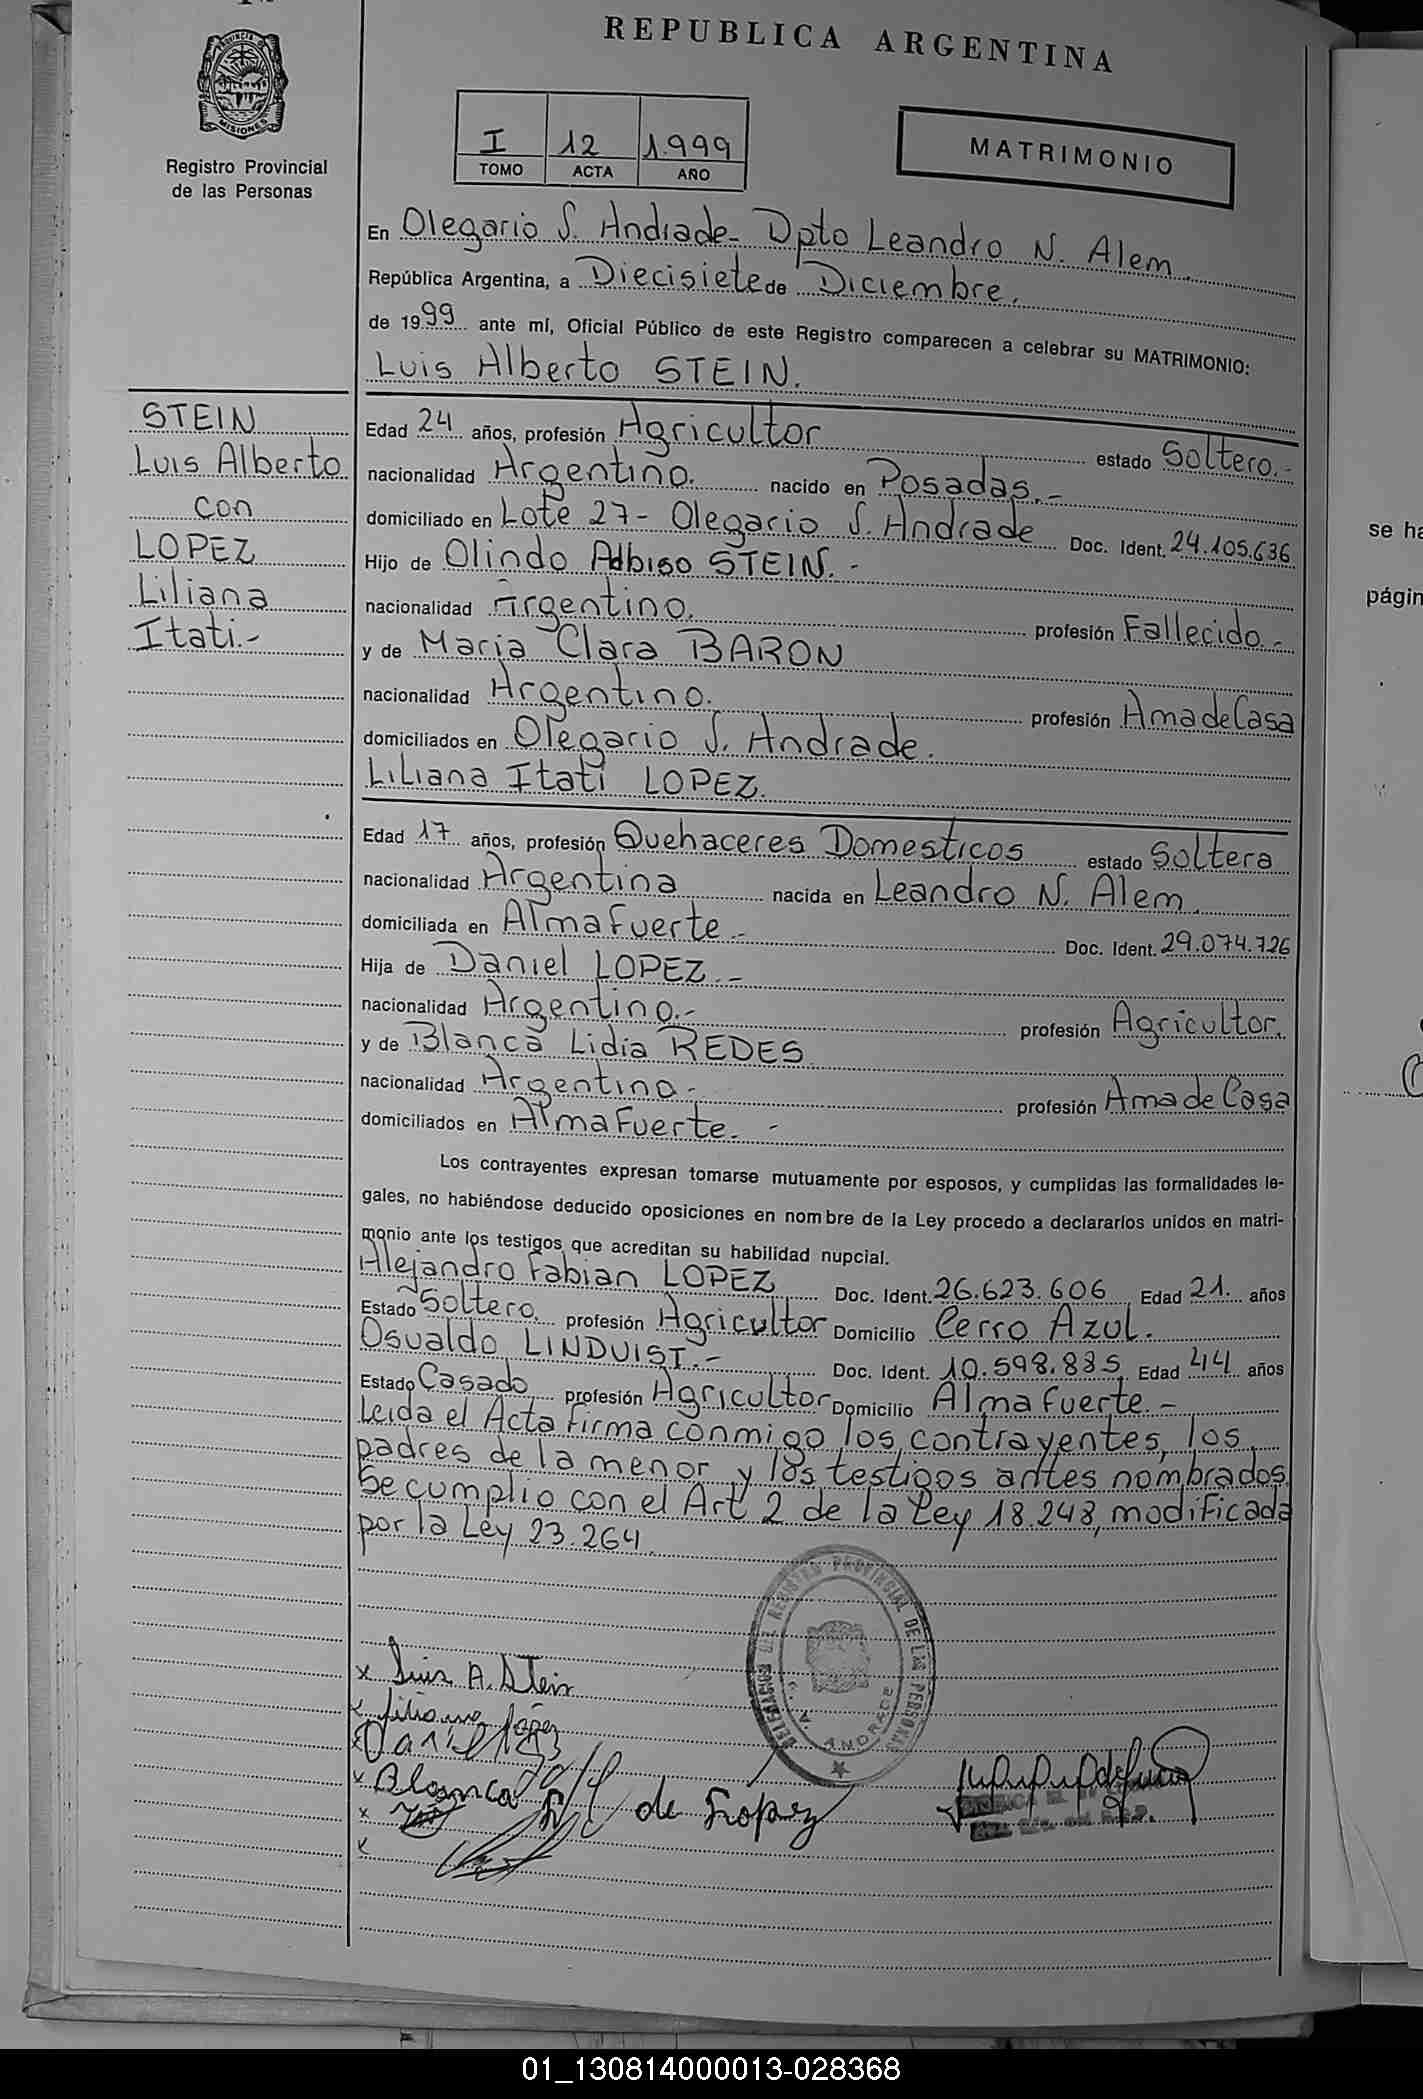 REPUBLICA ARGENTINA
PROVINCIA DE
MISIONES
Registro Provincial
de las Personas
I 12 1.999
TOMO ACTA AÑO
MATRIMONIO
En Olegario S. Andrade- Dpto Leandro N. Alem.
República Argentina, a Diecisiete de Diciembre.
de 1999 ante mí, Oficial Público de este Registro comparecen a celebrar su MATRIMONIO:
Luis Alberto STEIN.
STEIN
Luis Alberto
con
LOPEZ
Liliana
Itati.-
Edad 24 años, profesión Agricultor estado Soltero.-
nacionalidad Argentino. nacido en Posadas.-
domiciliado en Lote 27- Olegario S. Andrade Doc. Ident. 24.105.636
Hijo de Olindo Albiso STEIN.-
nacionalidad Argentino. profesión Fallecido.-
y de Maria Clara BARON
nacionalidad Argentino. profesión Ama de Casa
domiciliados en Olegario S. Andrade.
Liliana Itati LOPEZ.
Edad 17 años, profesión Quehaceres Domesticos estado Soltera
nacionalidad Argentina nacida en Leandro N. Alem.
domiciliada en Almafuerte.- Doc. Ident. 29.074.726
Hija de Daniel LOPEZ.-
nacionalidad Argentino.- profesión Agricultor.
y de Blanca Lidia REDES
nacionalidad Argentina- profesión Ama de Casa
domiciliados en Almafuerte.-
Los contrayentes expresan tomarse mutuamente por esposos, y cumplidas las formalidades le-
gales, no habiéndose deducido oposiciones en nombre de la Ley procedo a declararlos unidos en matri-
monio ante los testigos que acreditan su habilidad nupcial.
Alejandro Fabian LOPEZ Doc. Ident. 26.623.606 Edad 21. años
Estado Soltero. profesión Agricultor Domicilio Cerro Azul.
Osvaldo LINDUIST.- Doc. Ident. 10.598.885 Edad 44 años
Estado Casado profesión Agricultor Domicilio Almafuerte-
Leida el Acta firma conmigo los contrayentes, los
padres de la menor y los testigos antes nombrados
Se cumplio con el Art 2 de la Ley 18.248, modificada
por la Ley 23.264.
DELEGACION DEL REGISTRO PROVINCIAL DE LAS PERSONAS
ANDRADE
x Luis A. Stein
x Liliana López
x Daniel López
x Blanca de Lopez
x
x
se ha
págin
01_130814000013-028368